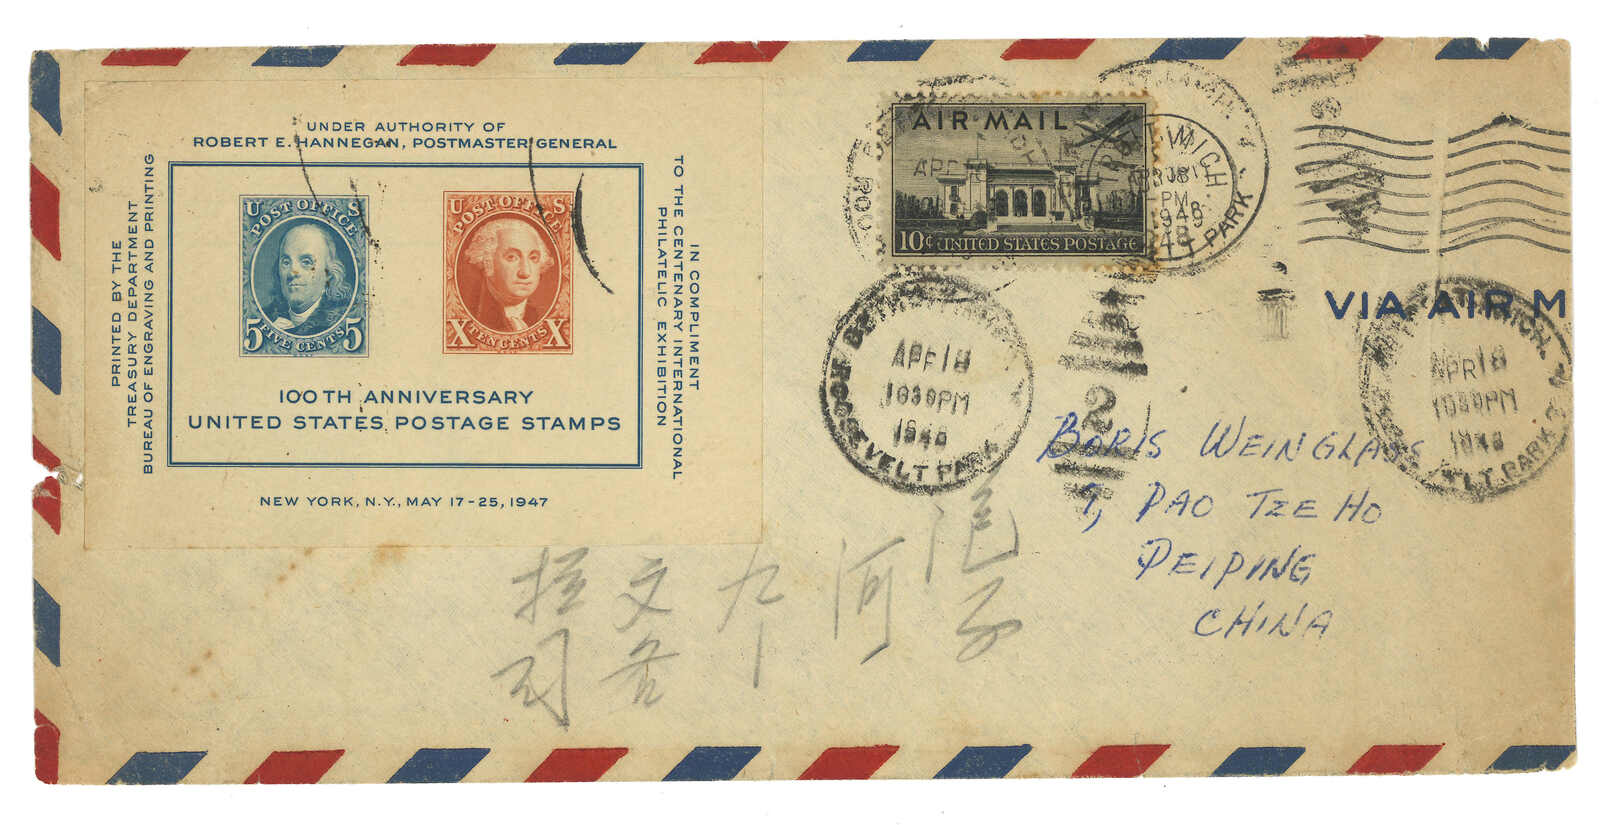 UNDER AUTHORITY OF
ROBERT E. HANNEGAN, POSTMASTER GENERAL
PRINTED BY THE
TREASURY DEPARTMENT
BUREAU OF ENGRAVING AND PRINTING
U S
POST OFFICE
5 FIVE CENTS 5
U S
POST OFFICE
X TEN CENTS X
TO THE CENTENARY INTERNATIONAL
PHILATELIC EXHIBITION
IN COMPLIMENT
100TH ANNIVERSARY
UNITED STATES POSTAGE STAMPS
NEW YORK, N.Y., MAY 17-25, 1947
AIR MAIL
10¢ UNITED STATES POSTAGE
MICH
PM
1948
PARK
VIA AIR M
APR 18
1030PM
1948
ROOSEVELT PARK
2
APR 18
1030PM
1948
PARK
BORIS WEINGLASS
9, PAO TZE HO
PEIPING
CHINA
子
河
九
文
司